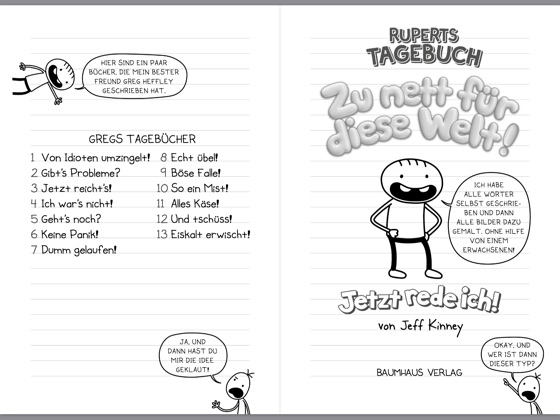 HIER SIND EIN PAAR
BÜCHER, DIE MEIN BESTER
FREUND GREG HEFFLEY
GESCHRIEBEN HAT.
GREGS TAGEBÜCHER
1 Von Idioten umzingelt!
2 Gibt's Probleme?
3 Jetzt reicht's!
4 Ich war's nicht!
5 Geht's noch?
6 Keine Panik!
7 Dumm gelaufen!
8 Echt übel!
9 Böse Falle!
10 So ein Mist!
11 Alles Käse!
12 Und tschüss!
13 Eiskalt erwischt!
JA, UND
DANN HAST DU
MIR DIE IDEE
GEKLAUT!
RUPERTS
TAGEBUCH
Zu nett für
diese Welt!
ICH HABE
ALLE WÖRTER
SELBST GESCHRIE-
BEN UND DANN
ALLE BILDER DAZU
GEMALT. OHNE HILFE
VON EINEM
ERWACHSENEN!
Jetzt rede ich!
von Jeff Kinney
BAUMHAUS VERLAG
OKAY, UND
WER IST DANN
DIESER TYP?